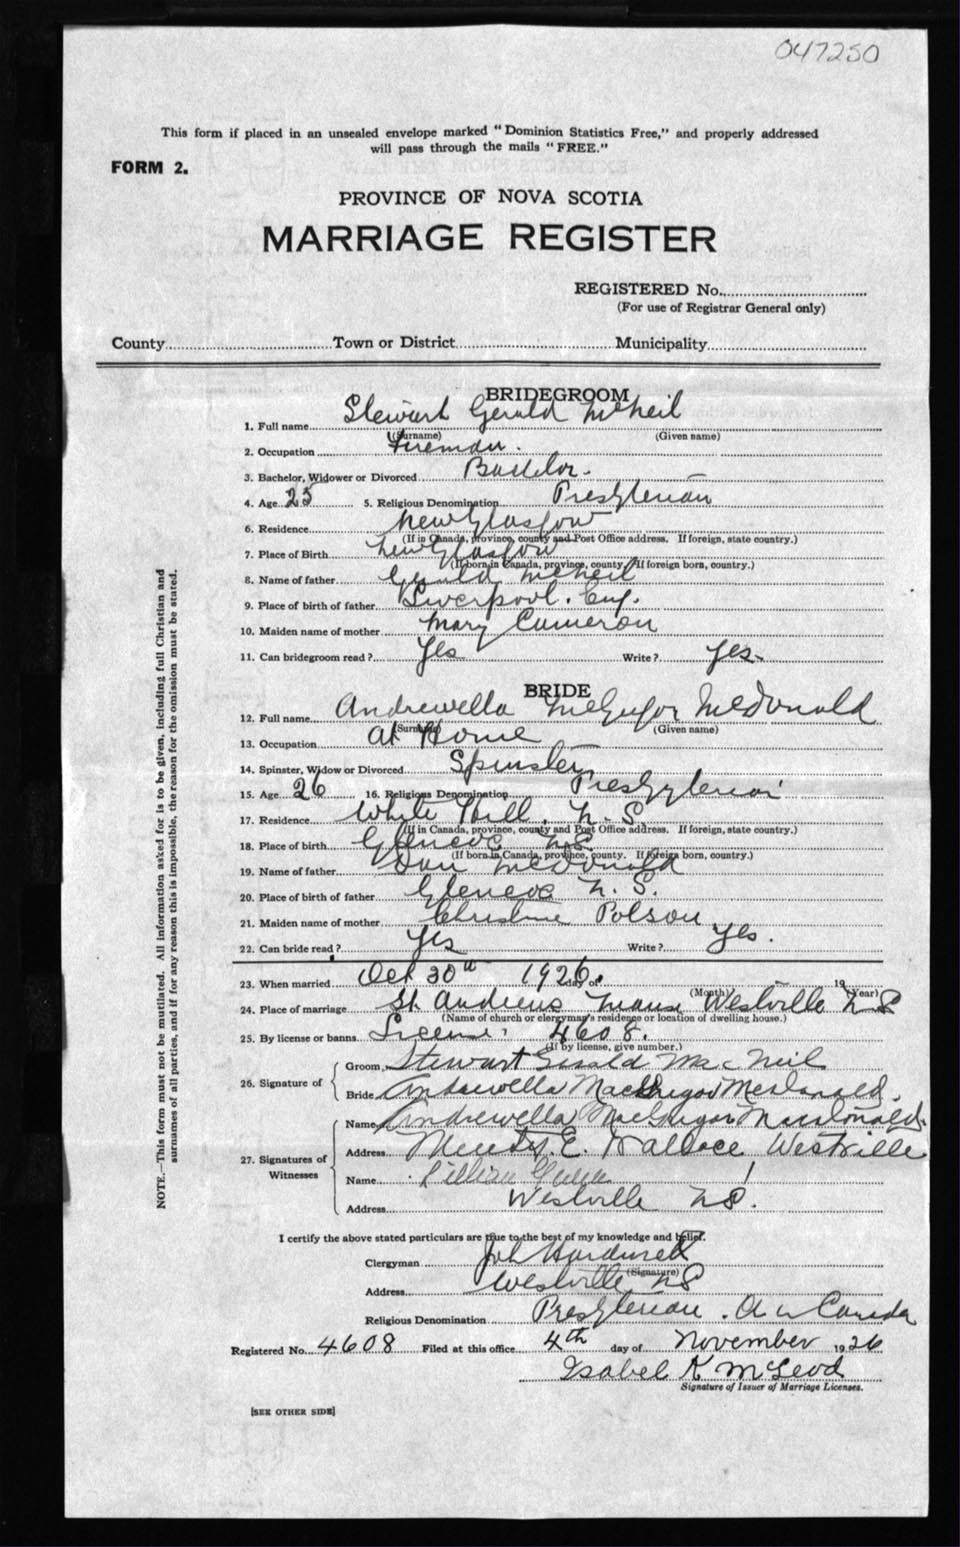 047250
This form if placed in an unsealed envelope marked "Dominion Statistics Free," and properly addressed
will pass through the mails "FREE."
FORM 2.
PROVINCE OF NOVA SCOTIA
MARRIAGE REGISTER
REGISTERED No.
(For use of Registrar General only)
County Town or District Municipality
BRIDEGROOM
1. Full name Stewart Gerald McNeil
(Surname) (Given name)
2. Occupation Fireman.
3. Bachelor, Widower or Divorced Bachelor.
4. Age 25 5. Religious Denomination Presbyterian
6. Residence New Glasgow
(If in Canada, province, county and Post Office address. If foreign, state country.)
7. Place of Birth New Glasgow
(If born in Canada, province, county. If foreign born, country.)
8. Name of father Gerald McNeil
9. Place of birth of father Liverpool. Eng.
10. Maiden name of mother Mary Cameron
11. Can bridegroom read? Yes Write? yes.
BRIDE
12. Full name Andrewella McGregor McDonald
(Surname) (Given name)
13. Occupation at Home
14. Spinster, Widow or Divorced Spinster
15. Age 26 16. Religious Denomination Presbyterian
17. Residence White Hill, N.S.
(If in Canada, province, county and Post Office address. If foreign, state country.)
18. Place of birth Glencoe NS
(If born in Canada, province, county. If foreign born, country.)
19. Name of father Dan McDonald
20. Place of birth of father Glencoe N.S.
21. Maiden name of mother Christine Polson
22. Can bride read? Yes Write? Yes.
23. When married Oct 30th 1926. day of 19
(Month) (Year)
24. Place of marriage St. Andrews Manse Westville NS
(Name of church or clergyman's residence or location of dwelling house.)
25. By license or banns License 4608.
(If by license, give number.)
26. Signature of Groom Stewart Gerald MacNeil
Bride Andrewella MacGregor MacDonald.
27. Signatures of Witnesses Name Andrewella MacGregor MacDonald.
Address E. Wallace Westville
Name Lillian
Address Westville NS.
I certify the above stated particulars are true to the best of my knowledge and belief.
Clergyman
(Signature)
Address Westville NS
Religious Denomination Presbyterian. Canada
Registered No. 4608 Filed at this office 4th day of November 1926
Isabel K McLeod
Signature of Issuer of Marriage Licenses.
[SEE OTHER SIDE]
NOTE.—This form must not be mutilated. All information asked for is to be given, including full Christian and
surnames of all parties, and if for any reason this is impossible, the reason for the omission must be stated.